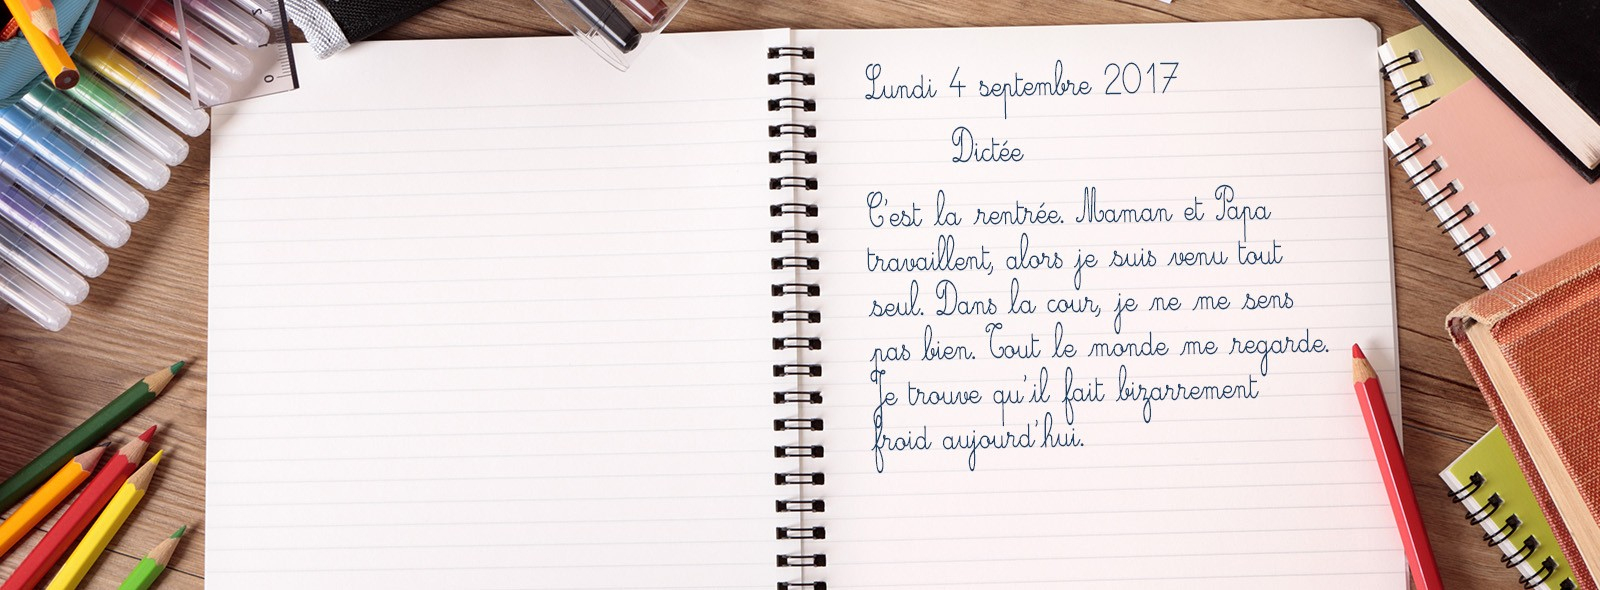 Lundi 4 septembre 2017
Dictée
C'est la rentrée. Maman et Papa
travaillent, alors je suis venu tout
seul. Dans la cour, je ne me sens
pas bien. Tout le monde me regarde.
Je trouve qu'il fait bizarrement
froid aujourd'hui.